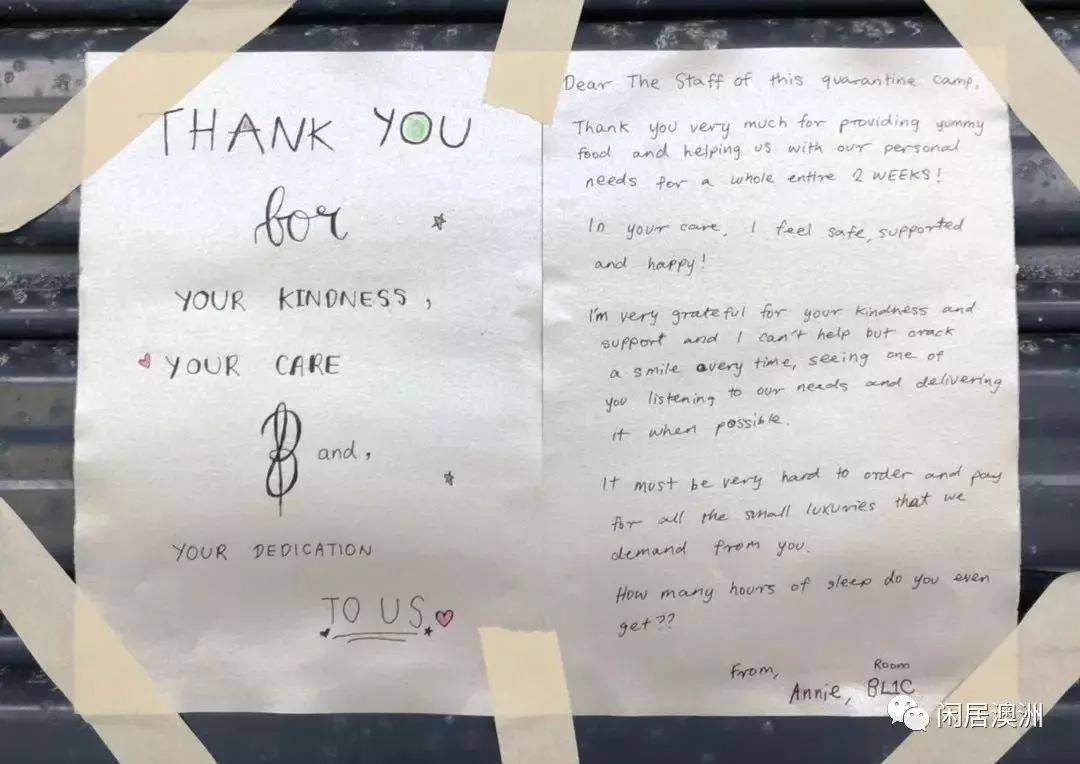 THANK YOU
for
YOUR KINDNESS,
YOUR CARE
and,
YOUR DEDICATION
TO US
Dear The Staff of this quarantine camp,
Thank you very much for providing yummy
food and helping us with our personal
needs for a whole entire 2 WEEKS!
In your care, I feel safe, supported
and happy!
I'm very grateful for your kindness and
support and I can't help but crack
a smile every time, seeing one of
you listening to our needs and delivering
it when possible.
It must be very hard to order and pay
for all the small luxuries that we
demand from you.
How many hours of sleep do you even
get??
From,
Annie, Room
8L1C
闲居澳洲